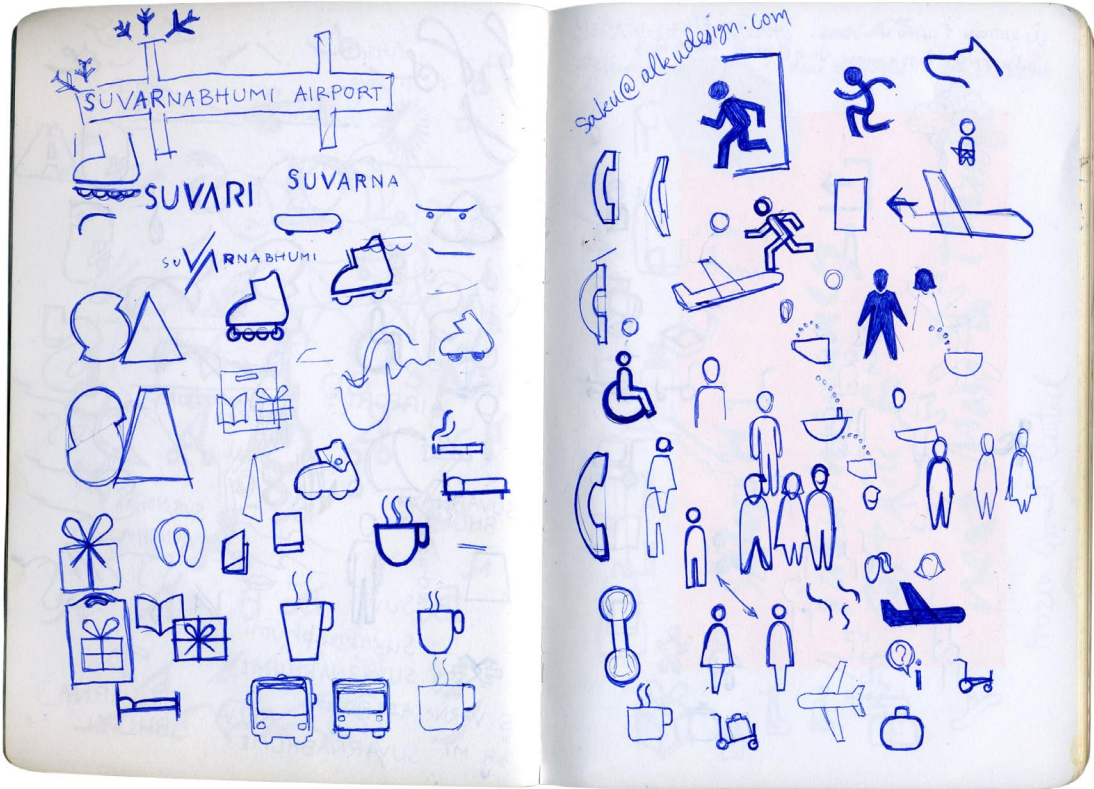 SUVARNABHUMI AIRPORT
SUVARI
SUVARNA
SUVARNABHUMI
SA
SA
saku@alkudesign.com
?
i